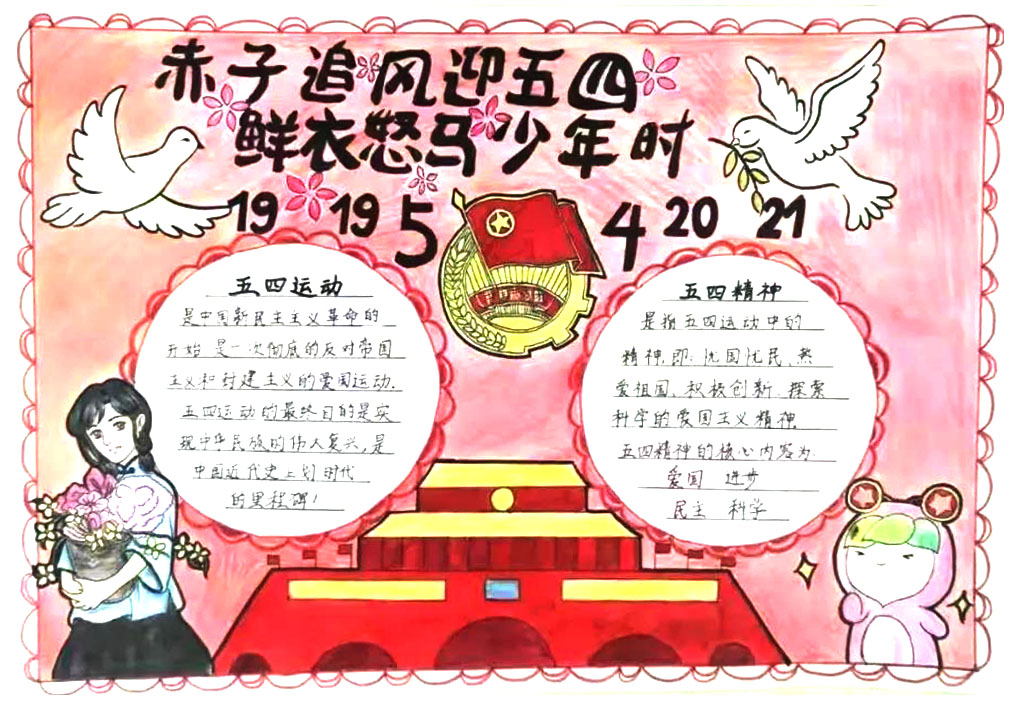 赤子追风迎五四
鲜衣怒马少年时
19 19 5 4 20 21
五四运动
是中国新民主主义革命的
开始 是一次彻底的反对帝国
主义和封建主义的爱国运动.
五四运动的最终目的是实
现中华民族的伟大复兴,是
中国近代史上划时代
的里程碑!
五四精神
是指五四运动中的
精神,即:忧国忧民、热
爱祖国、积极创新、探索
科学的爱国主义精神
五四精神的核心内容为:
爱国 进步
民主 科学